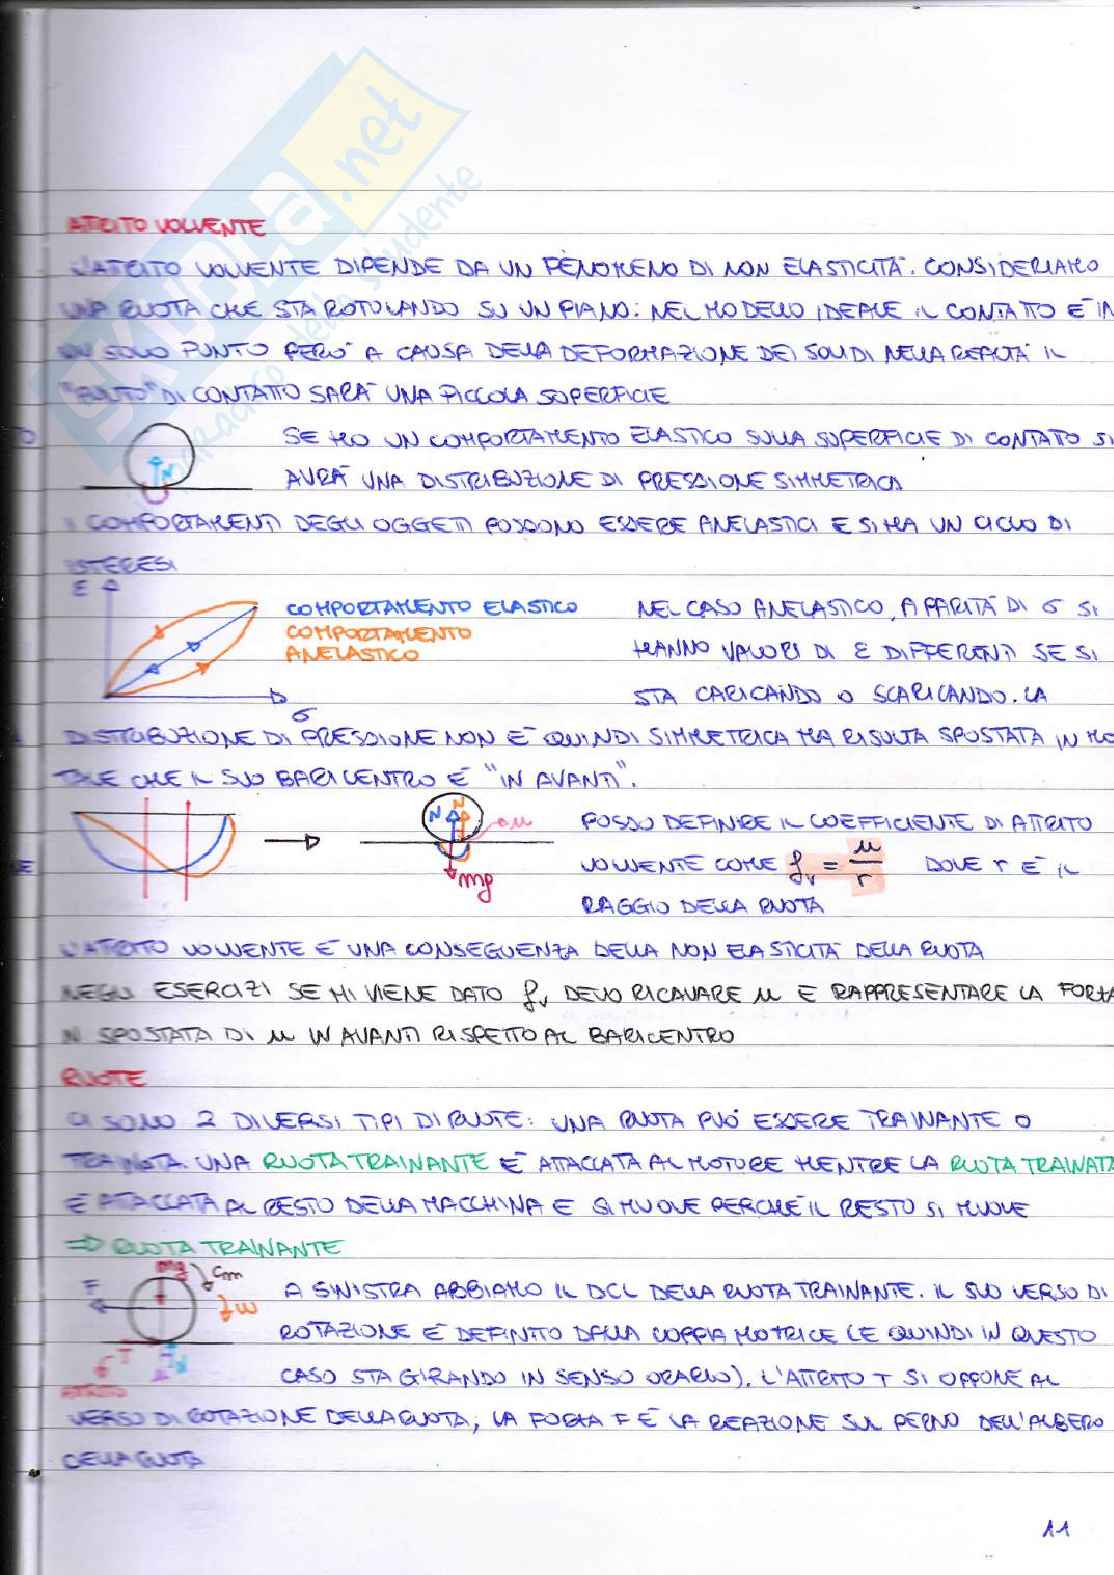 SKUOLA.net
ATTRITO VOLVENTE
L'ATTRITO VOLVENTE DIPENDE DA UN FENOMENO DI NON ELASTICITÀ. CONSIDERIAMO
UNA RUOTA CHE STA ROTOLANDO SU UN PIANO: NEL MODELLO IDEALE IL CONTATTO È IN
UN SOLO PUNTO PERÒ A CAUSA DELLA DEFORMAZIONE DEI SOLIDI NELLA REALTÀ IL
"PUNTO" DI CONTATTO SARÀ UNA PICCOLA SUPERFICIE
SE HO UN COMPORTAMENTO ELASTICO SULLA SUPERFICIE DI CONTATTO SI
N
AVRÀ UNA DISTRIBUZIONE DI PRESSIONE SIMMETRICA
I COMPORTAMENTI DEGLI OGGETTI POSSONO ESSERE ANELASTICI E SI HA UN CICLO DI
ISTERESI
E
COMPORTAMENTO ELASTICO
COMPORTAMENTO
ANELASTICO
σ
NEL CASO ANELASTICO, A PARITÀ DI σ SI
HANNO VALORI DI ε DIFFERENTI SE SI
STA CARICANDO O SCARICANDO. LA
DISTRIBUZIONE DI PRESSIONE NON È QUINDI SIMMETRICA MA RISULTA SPOSTATA IN MO
TALE CHE IL SUO BARICENTRO È "IN AVANTI".
N N
u
mg
POSSO DEFINIRE IL COEFFICIENTE DI ATTRITO
VOLVENTE COME fv = u/r DOVE r È IL
RAGGIO DELLA RUOTA
L'ATTRITO VOLVENTE È UNA CONSEGUENZA DELLA NON ELASTICITÀ DELLA RUOTA
NEGLI ESERCIZI SE MI VIENE DATO fv DEVO RICAVARE u E RAPPRESENTARE LA FORZA
N SPOSTATA DI u IN AVANTI RISPETTO AL BARICENTRO
RUOTE
CI SONO 2 DIVERSI TIPI DI RUOTE: UNA RUOTA PUÒ ESSERE TRAINANTE O
TRAINATA. UNA RUOTA TRAINANTE È ATTACCATA AL MOTORE MENTRE LA RUOTA TRAINATA
È ATTACCATA AL RESTO DELLA MACCHINA E SI MUOVE PERCHÉ IL RESTO SI MUOVE
⇒ RUOTA TRAINANTE
mg Cm
F
ω
T
N
ATTRITO
A SINISTRA ABBIAMO IL DCL DELLA RUOTA TRAINANTE. IL SUO VERSO DI
ROTAZIONE È DEFINITO DALLA COPPIA MOTRICE (E QUINDI IN QUESTO
CASO STA GIRANDO IN SENSO ORARIO). L'ATTRITO T SI OPPONE AL
VERSO DI ROTAZIONE DELLA RUOTA, LA FORZA F È LA REAZIONE SUL PERNO DELL'ALBERO
DELLA RUOTA
11